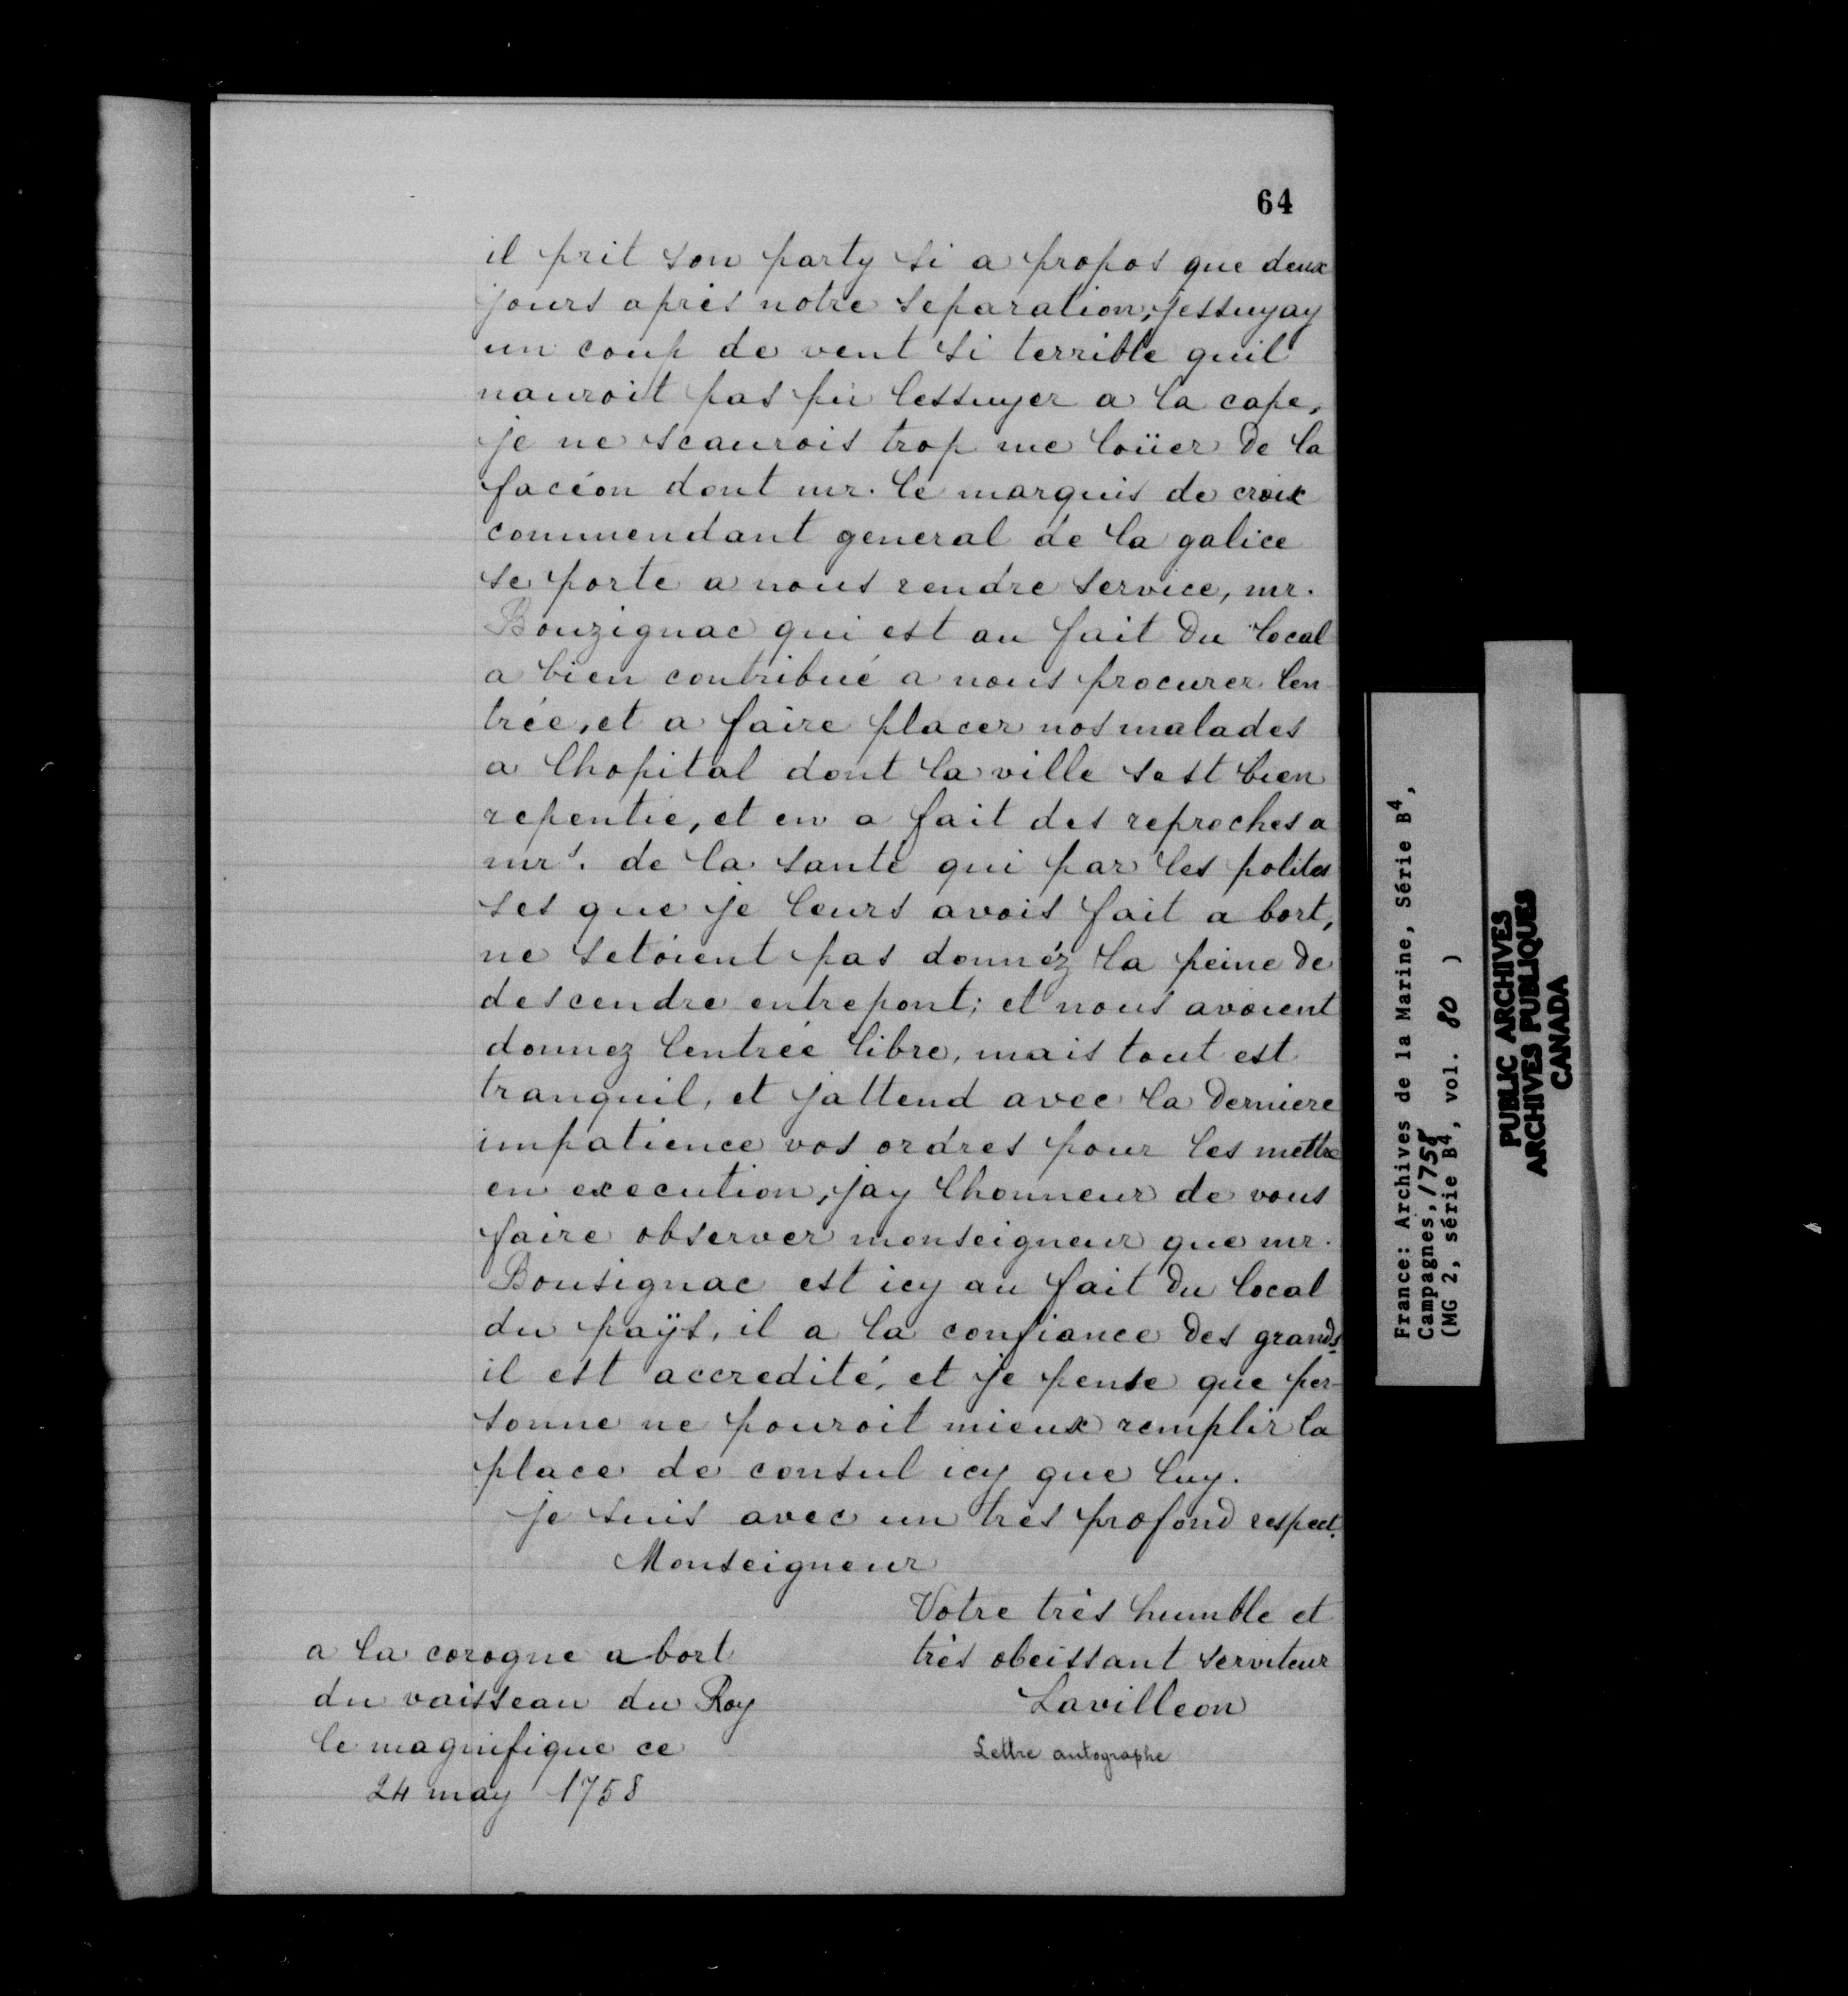 64
il prit son party si a propos que deux
jours après notre separation, jessuyay
un coup de vent si terrible quil
nauroit pas pû lessuyer a la cape,
je ne scaurois trop me loüer de la
facéon dont mr. le marquis de croix
commendant general de la galice
se porte a nous rendre service, mr.
Bouzignac qui est au fait du local
a bien contribué a nous procurer len
trée, et a faire placer nos malades
a lhopital dont la ville sest bien
repentie, et en a fait des reproches a
mrs. de la santé qui par les polites
ses que je leurs avois fait a bort,
ne setoient pas donnéz la peine de
descendre entrepont; et nous avoient
donnez lentrée libre, mais tout est
tranquil, et jattend avec la derniere
impatience vos ordres pour les mettre
en execution, jay lhonneur de vous
faire observer monseigneur que mr.
Bousignac est icy au fait du local
du païs, il a la confiance des grands
il est accredité, et je pense que per-
sonne ne pouroit mieux remplir la
place de consul icy que luy.
je suis avec un très profond respect.
Monseigneur
Votre très humble et
très obeissant serviteur
Lavilleon
Lettre autographe
a la corogne a bort
du vaisseau du Roy
le magnifique ce
24 may 1758
France: Archives de la Marine, Série B4,
Campagnes, 1758
(MG 2, série B4, vol. 80 )
PUBLIC ARCHIVES
ARCHIVES PUBLIQUES
CANADA